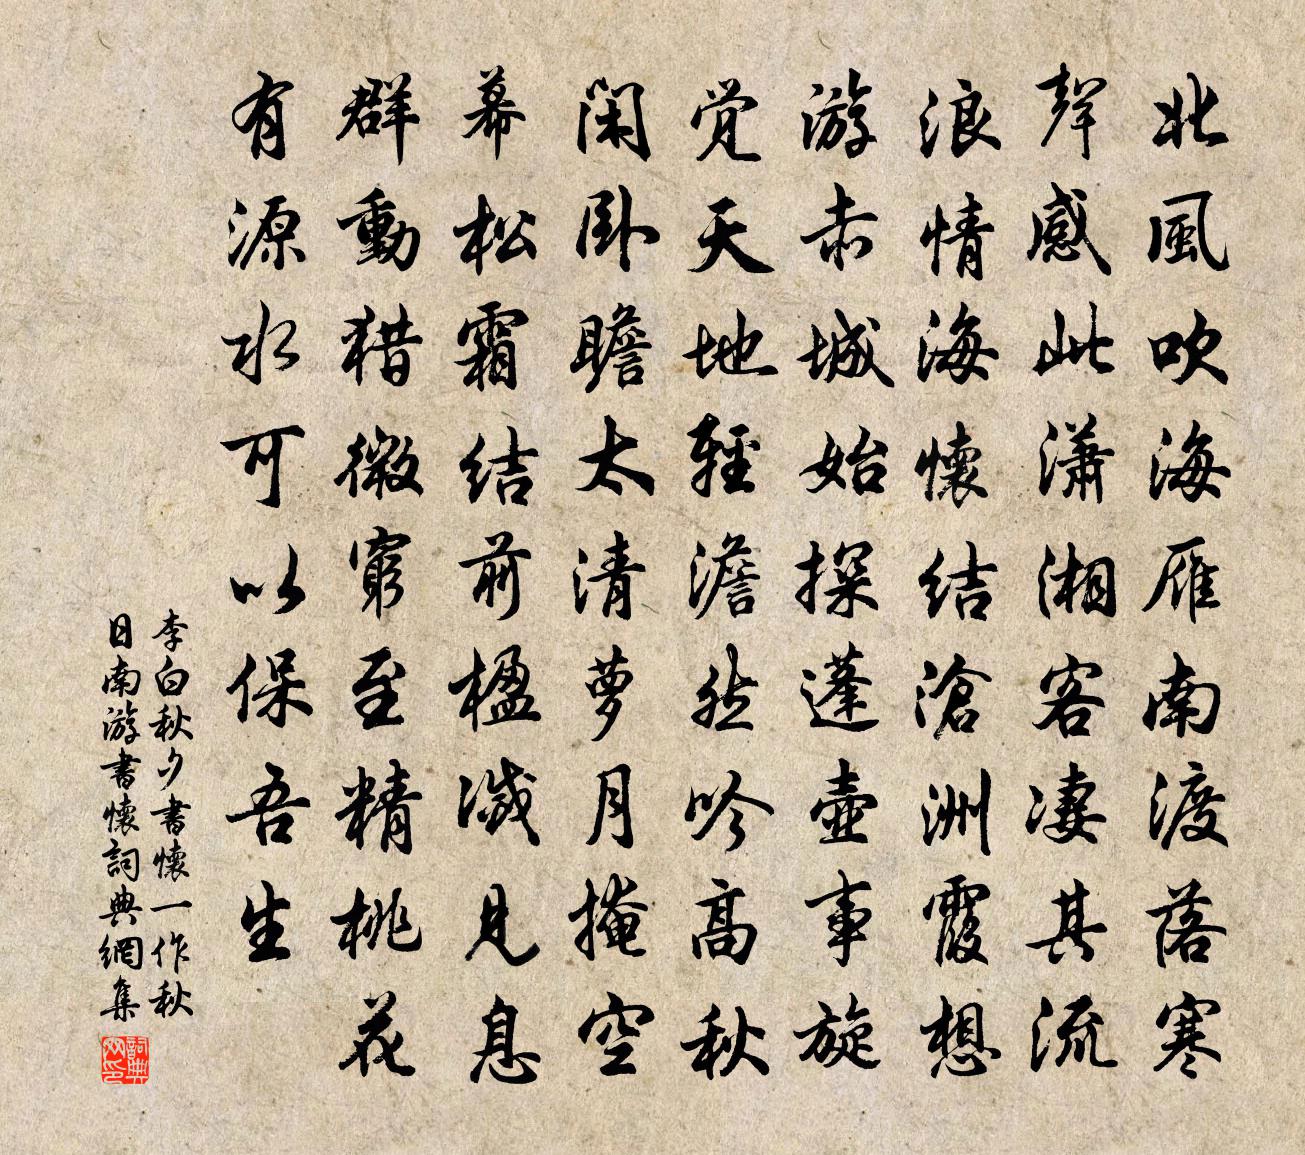 北風吹海雁南渡落寒
聲感此瀟湘客凄其流
浪情海懷結滄洲霞想
游赤城始探蓬壺事旋
覺天地輕澹然吟高秋
閑卧瞻太清萝月掩空
幕松霜結前楹滅見息
群動猎微窮至精桃花
有源水可以保吾生
李白秋夕書懷一作秋
日南游書懷詞典網集
詞典网印